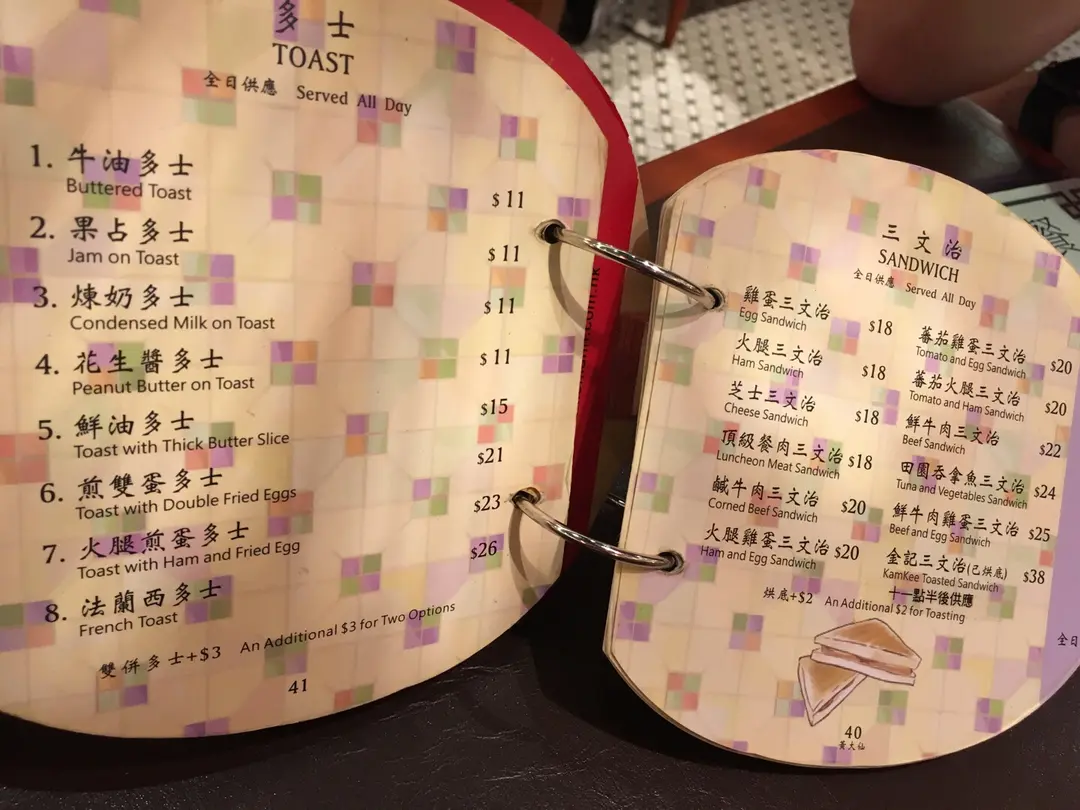 多士
TOAST
全日供應 Served All Day
1. 牛油多士
Buttered Toast $11
2. 果占多士
Jam on Toast $11
3. 煉奶多士
Condensed Milk on Toast $11
4. 花生醬多士
Peanut Butter on Toast $11
5. 鮮油多士
Toast with Thick Butter Slice $15
6. 煎雙蛋多士
Toast with Double Fried Eggs $21
7. 火腿煎蛋多士
Toast with Ham and Fried Egg $23
8. 法蘭西多士
French Toast $26
雙併多士+$3 An Additional $3 for Two Options
41
.com.hk
三文治
SANDWICH
全日供應 Served All Day
雞蛋三文治 $18
Egg Sandwich
火腿三文治 $18
Ham Sandwich
芝士三文治 $18
Cheese Sandwich
頂級餐肉三文治 $18
Luncheon Meat Sandwich
鹹牛肉三文治 $20
Corned Beef Sandwich
火腿雞蛋三文治 $20
Ham and Egg Sandwich
蕃茄雞蛋三文治 $20
Tomato and Egg Sandwich
蕃茄火腿三文治 $20
Tomato and Ham Sandwich
鮮牛肉三文治 $22
Beef Sandwich
田園吞拿魚三文治 $24
Tuna and Vegetables Sandwich
鮮牛肉雞蛋三文治 $25
Beef and Egg Sandwich
金記三文治(已烘底) $38
KamKee Toasted Sandwich
十一點半後供應
烘底+$2 An Additional $2 for Toasting
40
黃大仙
全日